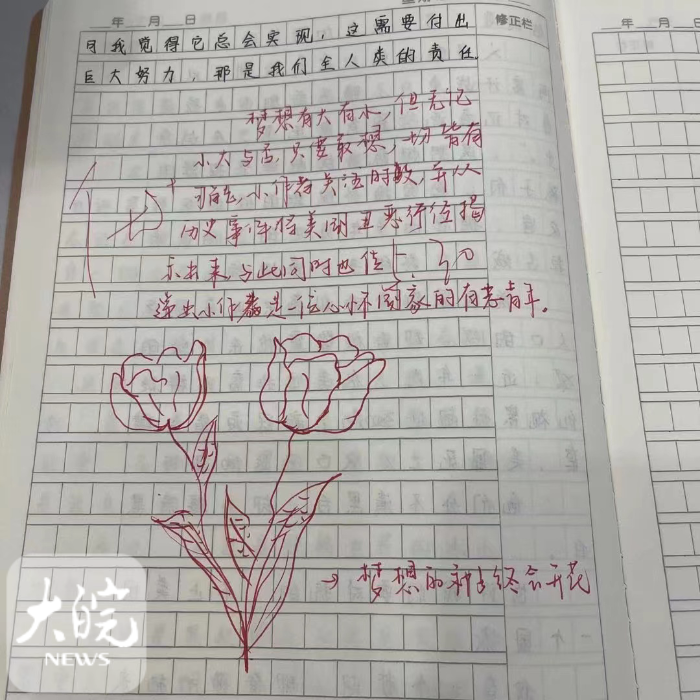 年 月 日
修正栏
年 月 日
但我觉得它总会实现 这需要付出
巨大努力，那是我们全人类的责任
梦想有大有小，但无论
小大与否，只要敢想，一切皆有
可能，小作者关注时政，并从
历史事件将美国丑恶行径揭
示出来，与此同时也
递出小作者是一位心怀国家的有志青年。
→ 梦想的种子终会开花
大皖
NEWS